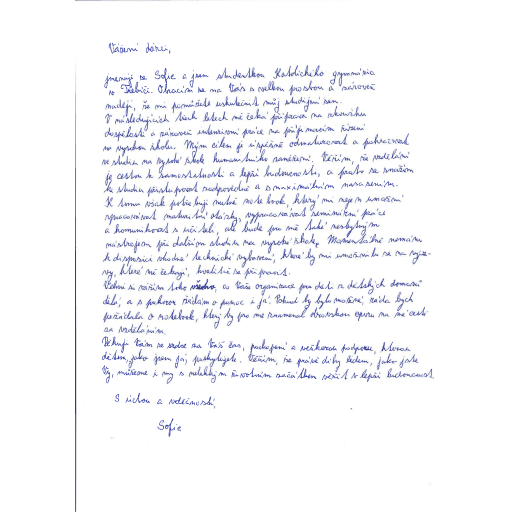 Vážení dárci,
jmenuji se Sofie a jsem studentkou Katolického gymnázia
v Třebíči. Obracím se na Vás s velkou prosbou a zároveň
nadějí, že mi pomůžete uskutečnit můj studijní sen.
V následujících třech letech mě čeká příprava na zkoušku
dospělosti a zároveň intenzivní práce na přijímacím řízení
na vysokou školu. Mým cílem je úspěšně odmaturovat a pokračovat
ve studiu na vysoké škole humanitního zaměření. Věřím, že vzdělání
je cestou k samostatnosti a lepší budoucnosti, a proto se snažím
ke studiu přistupovat zodpovědně a s maximálním nasazením.
K tomu však potřebuji nutně notebook, který mi nejen umožní
zpracovávat maturitní otázky, vypracovávat seminární práce
a komunikovat s učiteli, ale bude pro mě také nezbytným
nástrojem při dalším studiu na vysoké škole. Momentálně nemám
k dispozici vhodné technické vybavení, které by mi umožnilo se na výzvy,
které mě čekají, kvalitně připravit.
Velmi si vážím toho všeho, co Vaše organizace pro děti z dětských domovů
dělá, a s pokorou žádám o pomoc i já. Pokud by bylo možné, ráda bych
požádala o notebook, který by pro mě znamenal obrovskou oporu na mé cestě
za vzděláním.
Děkuji Vám ze srdce za Váš čas, pochopení a veškerou podporu, kterou
dětem, jako jsem já, poskytujete. Věřím, že právě díky lidem, jako jste
Vy, můžeme i my s nelehkým životním začátkem věřit v lepší budoucnost.
S úctou a vděčností,
Sofie